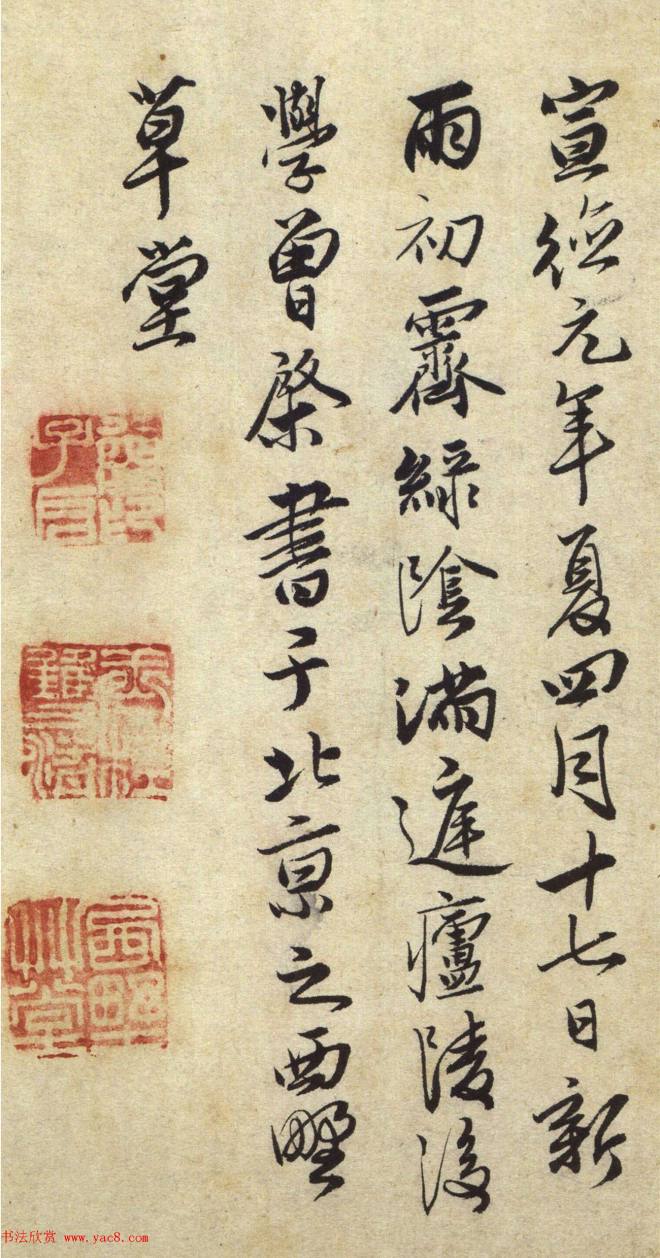 宣德元年夏四月十七日新
雨初霽綠陰滿庭廬陵後
學曾棨書于北京之西墅
草堂
西墅草堂
书法欣赏 www.yac8.com